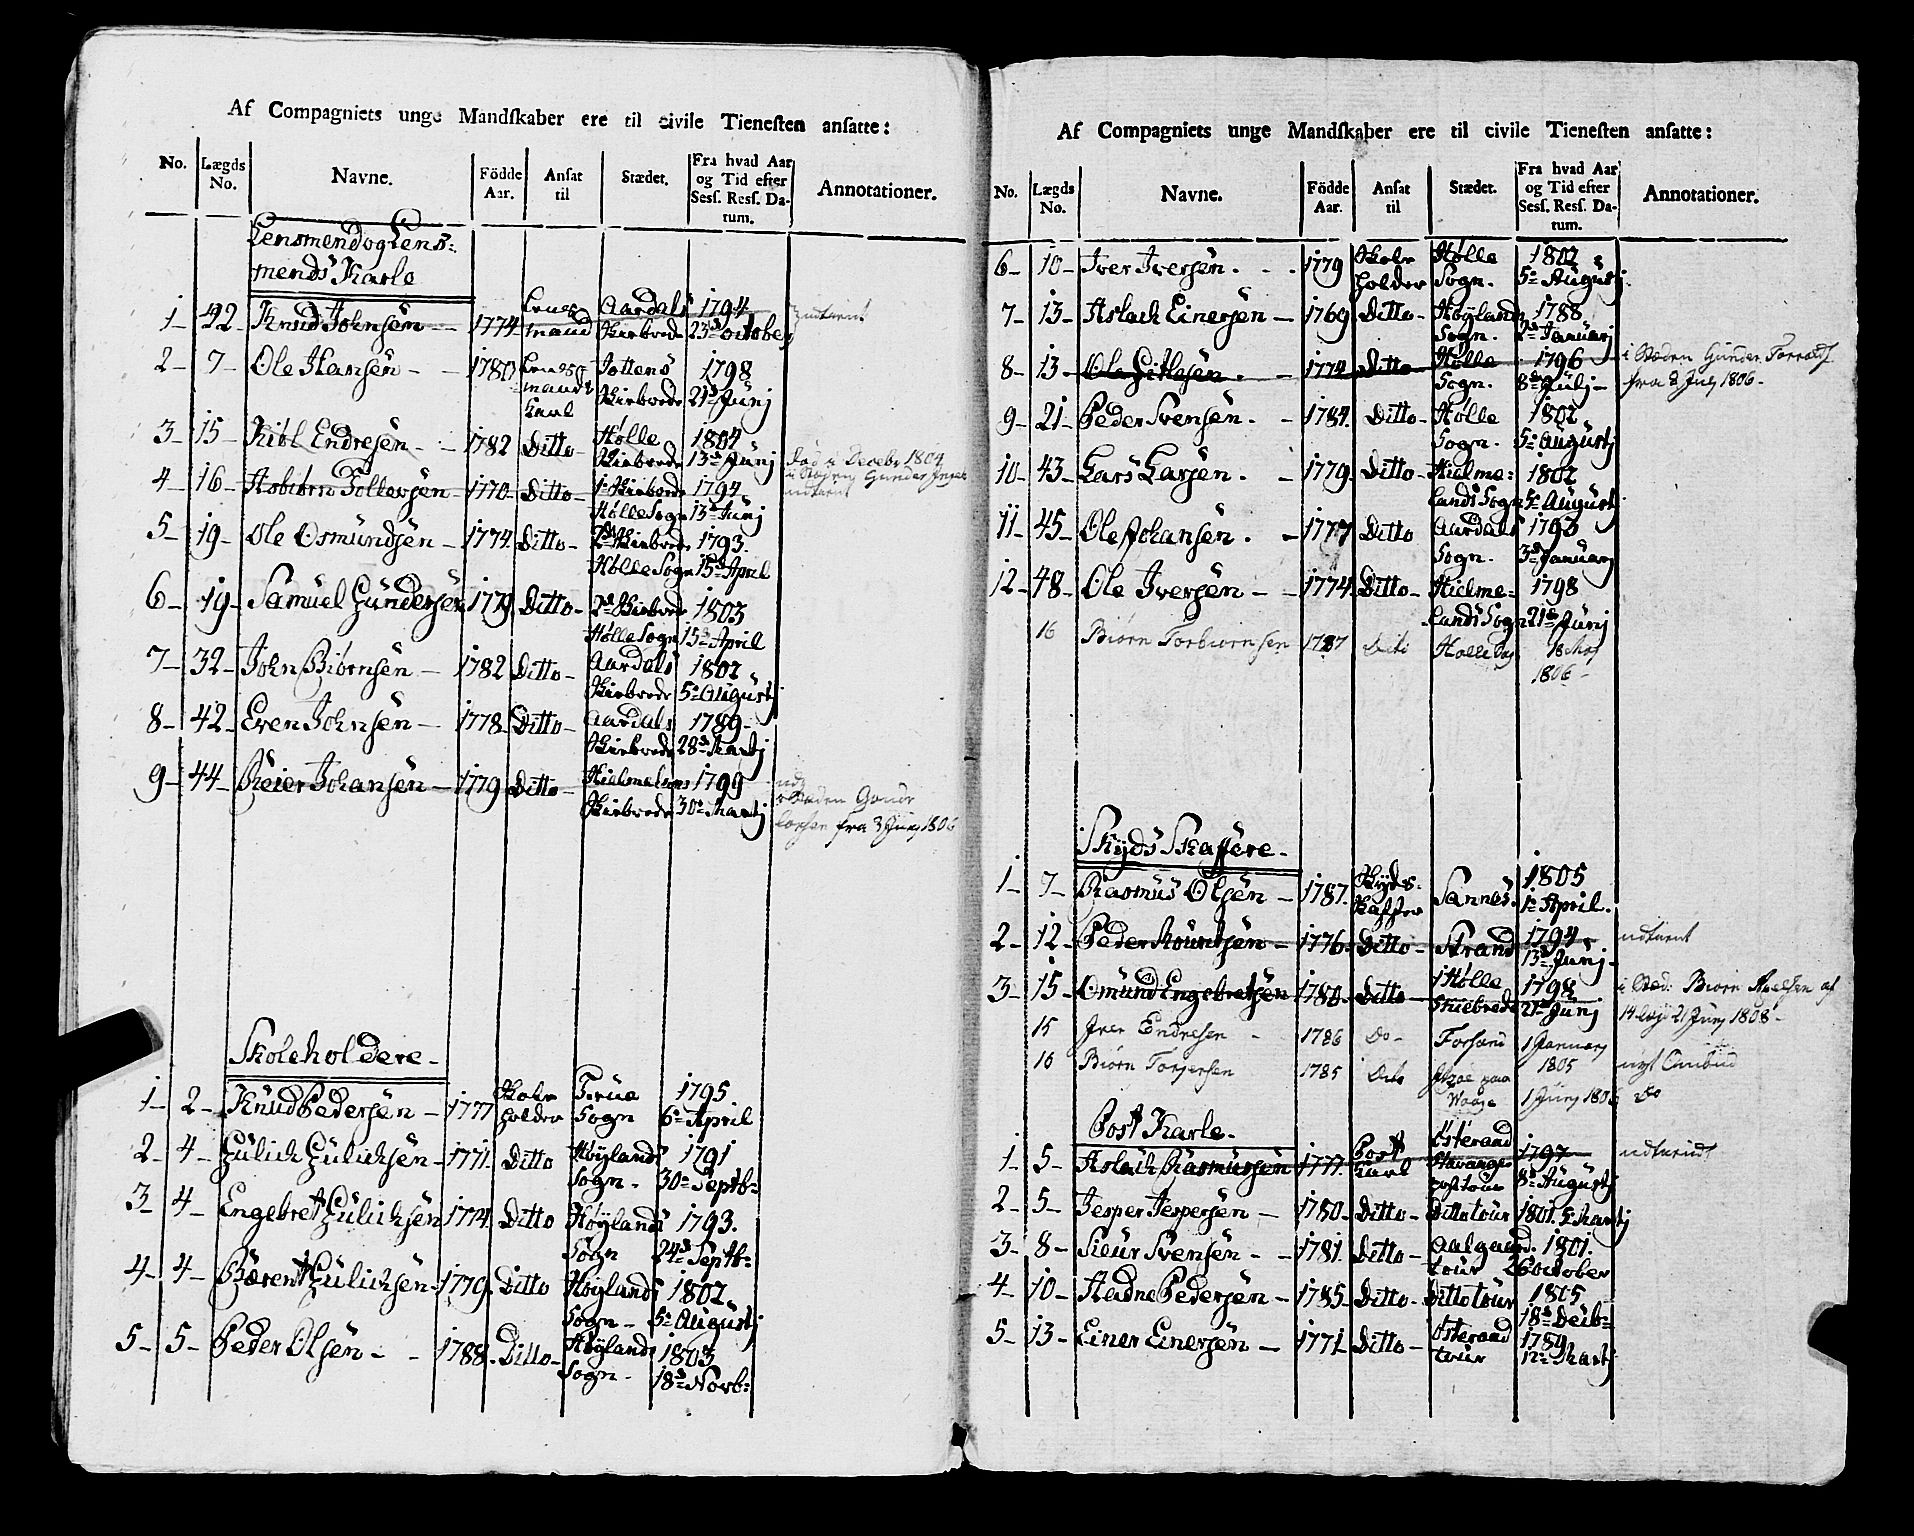 Af Compagniets unge Mandſkaber ere til civile Tieneſten anſatte:
No. Lægds No. Navne. Födde Aar. Anſat til Stædet. Fra hvad Aar og Tid efter Seſſ. Reſſ. Datum. Annotationer.
Lensmend og Lens=
mends Karle
1 22 Knud Johnsen 1774 Lens mand Aardals Skibrede 1794 23de october udtient
2 7 Ole Hansen 1780 Lens mands Karl Jottens Skibrede 1798 21de Junj
3 15 Endresen 1782 Ditto Hølle Skibrede 1804 13de Junj
død i Decebr 1804
4 16 Asbiørn Tollevsen 1770 Ditto 1te Skibrede Hølle Sogn 1794 13de Junj i Stæden Gunder udtient
5 19 Ole Osmundsen 1774 Ditto 2de Skibrede Hølle Sogn 1793. 15de April
6 19 Samuel Gundersen 1779 Ditto 2de Skibrede Hølle Sogn 1803 15de April
7 32 John Biørnsen 1782 Ditto Aardals Skibrede 1802 5te Augustj
8 42 Even Johnsen 1778 Ditto Aardals Skibrede 1789 28de Martj
9 44 Reier Johansen 1779 Ditto Hielmelands Skibrede 1799 30te Martj
i Stæden
fra 3 Junj 1806
Skoleholdere
1 2 Knud Pedersen 1777 Skole holder Frue Sogn 1795 6te April
2 4 Gulich Gulichsen 1771 Ditto Høylands Sogn 1791 30te Septb:
3 4 Engebret Gulichsen 1774 Ditto Høylands Sogn 1793. 24de Septb:
4 4 Bærent Gulichsen 1779 Ditto Høylands Sogn 1802 5te Augustj
5 5 Peder Olsen 1788 Ditto Høylands Sogn 1803 18de Novb:
Af Compagniets unge Mandſkaber ere til civile Tieneſten anſatte:
No. Lægds No. Navne. Födde Aar. Anſat til Stædet. Fra hvad Aar og Tid efter Seſſ. Reſſ. Datum. Annotationer.
6 10 Iver Iversen 1779 Skole holder Hølle Sogn. 1802 5te Augustj
7 13 Aslach Einersen 1769 Ditto Høylands Sogn. 1788 2de Januarj
8 13 Ole Gitlesen 1774 Ditto Hølle Sogn. 1796 8de Julj i Stæden Gunder
fra 2 Junj 1806
9 21 Peder Svensen 1784 Ditto Hølle Sogn. 1802 5te Augustj
10 43 Lars Larsen 1779 Ditto Hielme= lands Sogn 1802 5te Augustj
11 45 Ole Johansen 1777 Ditto Aardals Sogn. 1793 3de Januarj
12 48 Ole Iversen 1774 Ditto Hielme= lands Sogn 1798 21de Junj
16 Biørn Torbiørnsen 1787 Dito Hølle Sog 1806
Skyds Skaffere
1 7 Rasmus Olsen 1787. Skyds= skaffer Sannes. 1805 1te April.
2 12 Peder Mouritsen 1776 Ditto Strand 1794 13de Junj udtient
3 15 Omund Engebretsen 1780 Ditto i Hølle Skibrede 1798 21de Junj i Stæd: Biørn
21 Junj 1808
15 Iver Endresen 1786 Do Forsand 1 January 1805
16 Biørn Torgersen 1785 Dito 1 Junj 1806 Do
Post Karle
1 5 Aslach Rasmussen 1777 Post Karl Østeraad Stavanger 1797 8de Augustj udtient
2 5 Jesper Jespersen 1780 Ditto Ditto tour 1801. 5te Martj
3 8 Sieur Svensen 1781 Ditto Aalgaard tour 1801. 26 October
4 10 Hadne Pedersen 1785 Ditto Ditto tour 1805 18de Decb:
5 13 Einer Einersen 1771 Ditto Østeraad tour 1789 12te Martj